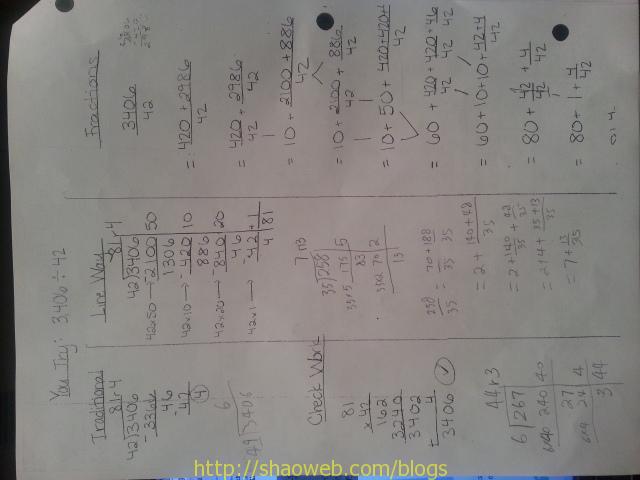 You Try: 3,406 ÷ 42
Traditional
81 r 4
42)3406
-336↓
46
-42
④
6
49)3406
Line Way
81 r 4
42)3406
42×50 → -2100 50
1306
42×10 → -420 10
886
42×20 → -840 20
46
42×1 → -42 +1
4 81
Fractions
3406
42
= 420 + 2986
42
= 420 + 2986
42 42
= 10 + 2100 + 886
42
= 10 + 2100 + 886
42 42
= 10 + 50 + 420+420+
42
= 60 + 420 + 420 + 46
42 42 42
= 60 + 10 + 10 + 42+4
42
= 80 + 42 + 4
42 42
= 80 + 1 + 4
42
Check Work
81
×42
162
3240
3402
+ 4
3406
44 r 3
6)267
6×40 240 40
27
6×4 24 4
3 44
7 r 13
35)258
35×5 175 5
83
35×2 70 2
13
258 = 70 + 188
35 35 35
= 2 + 140 + 48
35
= 2 + 140 + 48
35 35
= 2+4+ 35+13
35
= 7 + 13
35
http://shaoweb.com/blogs